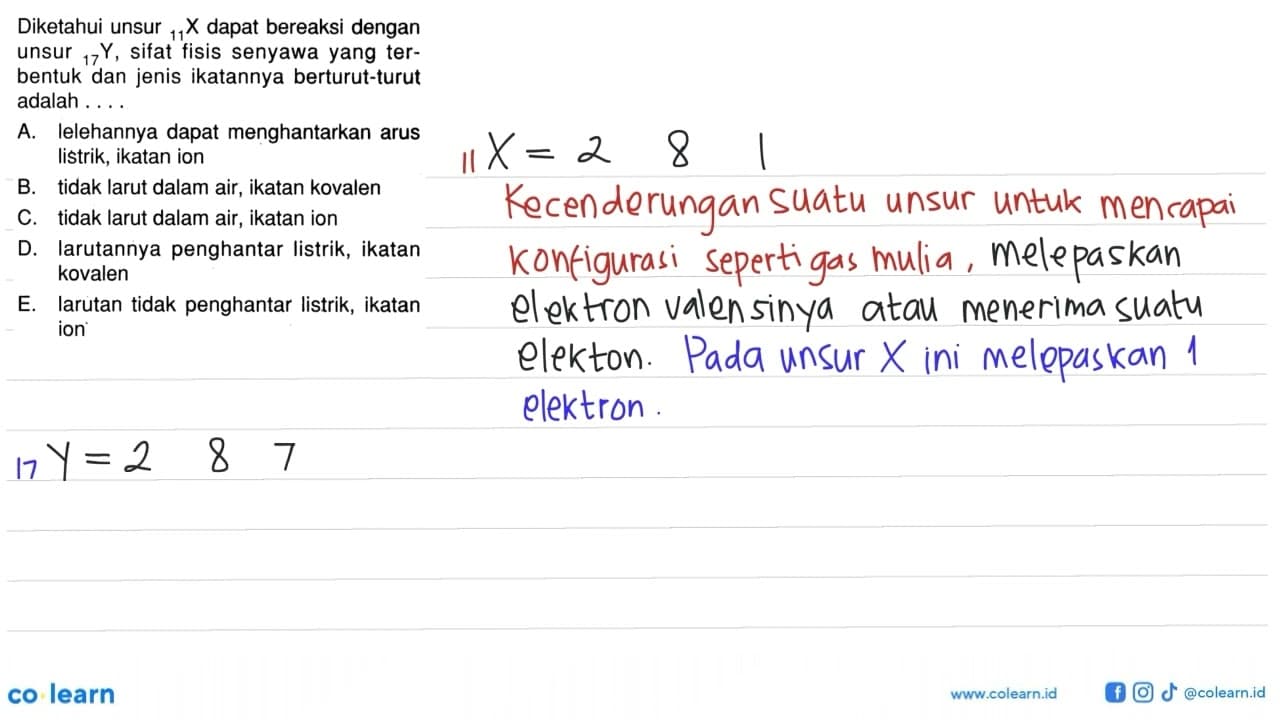 Diketahui unsur ₁₁X dapat bereaksi dengan
unsur ₁₇Y, sifat fisis senyawa yang ter-
bentuk dan jenis ikatannya berturut-turut
adalah . . . .
A. lelehannya dapat menghantarkan arus
listrik, ikatan ion
B. tidak larut dalam air, ikatan kovalen
C. tidak larut dalam air, ikatan ion
D. larutannya penghantar listrik, ikatan
kovalen
E. larutan tidak penghantar listrik, ikatan
ion
₁₁X = 2 8 1
Kecenderungan suatu unsur untuk mencapai
konfigurasi seperti gas mulia, melepaskan
elektron valensinya atau menerima suatu
elekton. Pada unsur X ini melepaskan 1
elektron.
₁₇Y = 2 8 7
co learn
www.colearn.id
@colearn.id